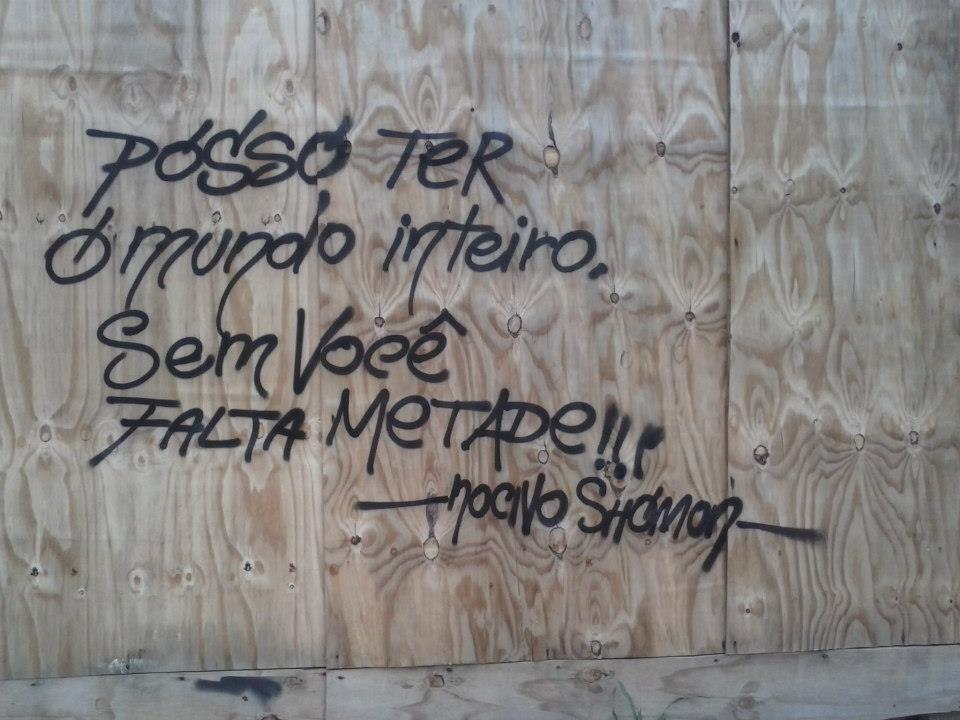 Posso Ter
o mundo inteiro.
Sem Você
FALTA METADE!!!
— nocivo SHOMON —